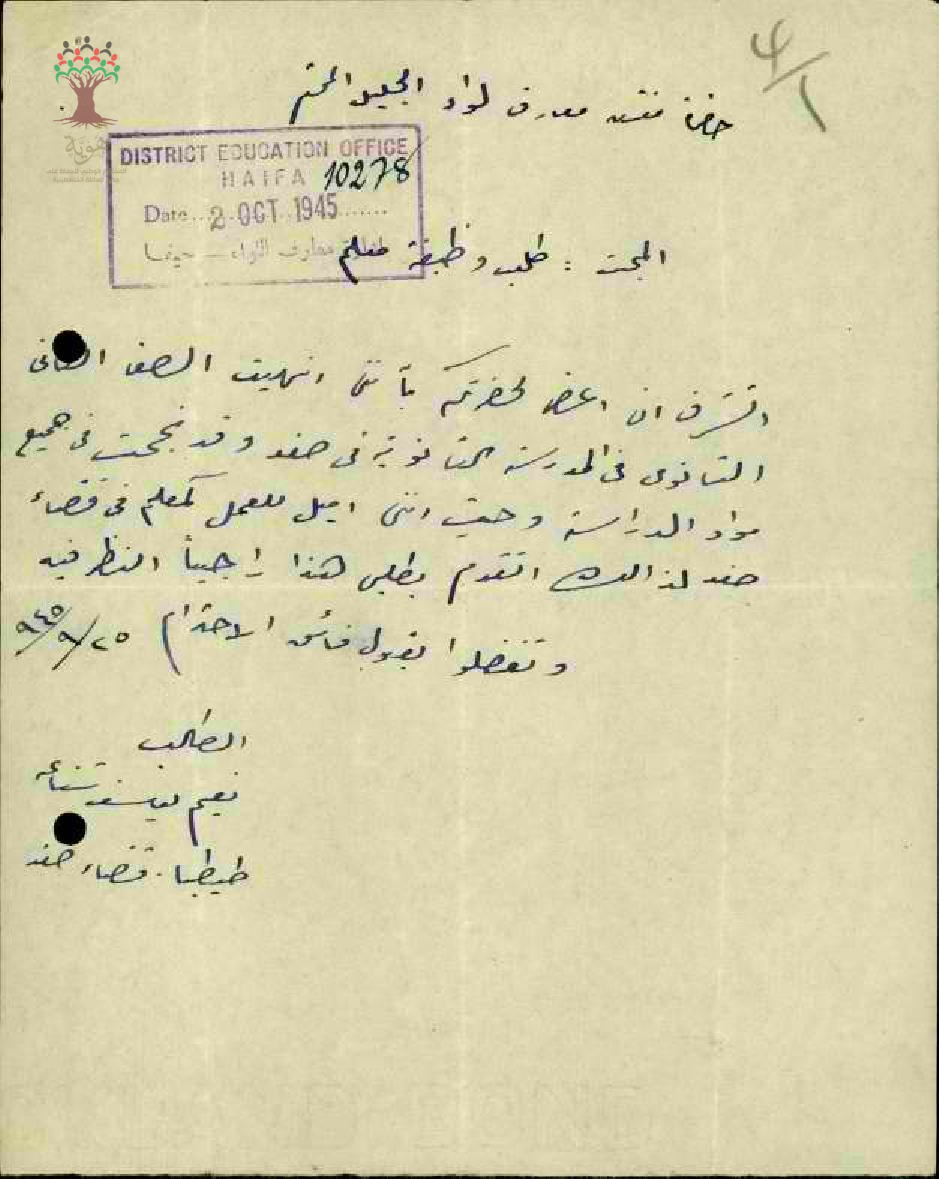 ٤/١
حضرة مفتش معارف لواء الجليل المحترم
DISTRICT EDUCATION OFFICE
HAIFA 10278
Date 2 OCT 1945
معارف اللواء - حيفا
المبحث : طلب وظيفة معلم
اتشرف ان اعرض لحضرتكم بأنني انهيت الصف الثاني
الثانوي في المدرسة الثانوية في صفد وقد نجحت في جميع
مواد الدراسة وحيث انني اميل للعمل كمعلم في قضاء
صفد لذالك اتقدم بطلبي هذا راجياً النظر فيه
وتفضلوا بقبول فائق الاحترام ٢٥/٩/٩٤٥
الطالب
نعيم يوسف
طيطبا. قضاء صفد